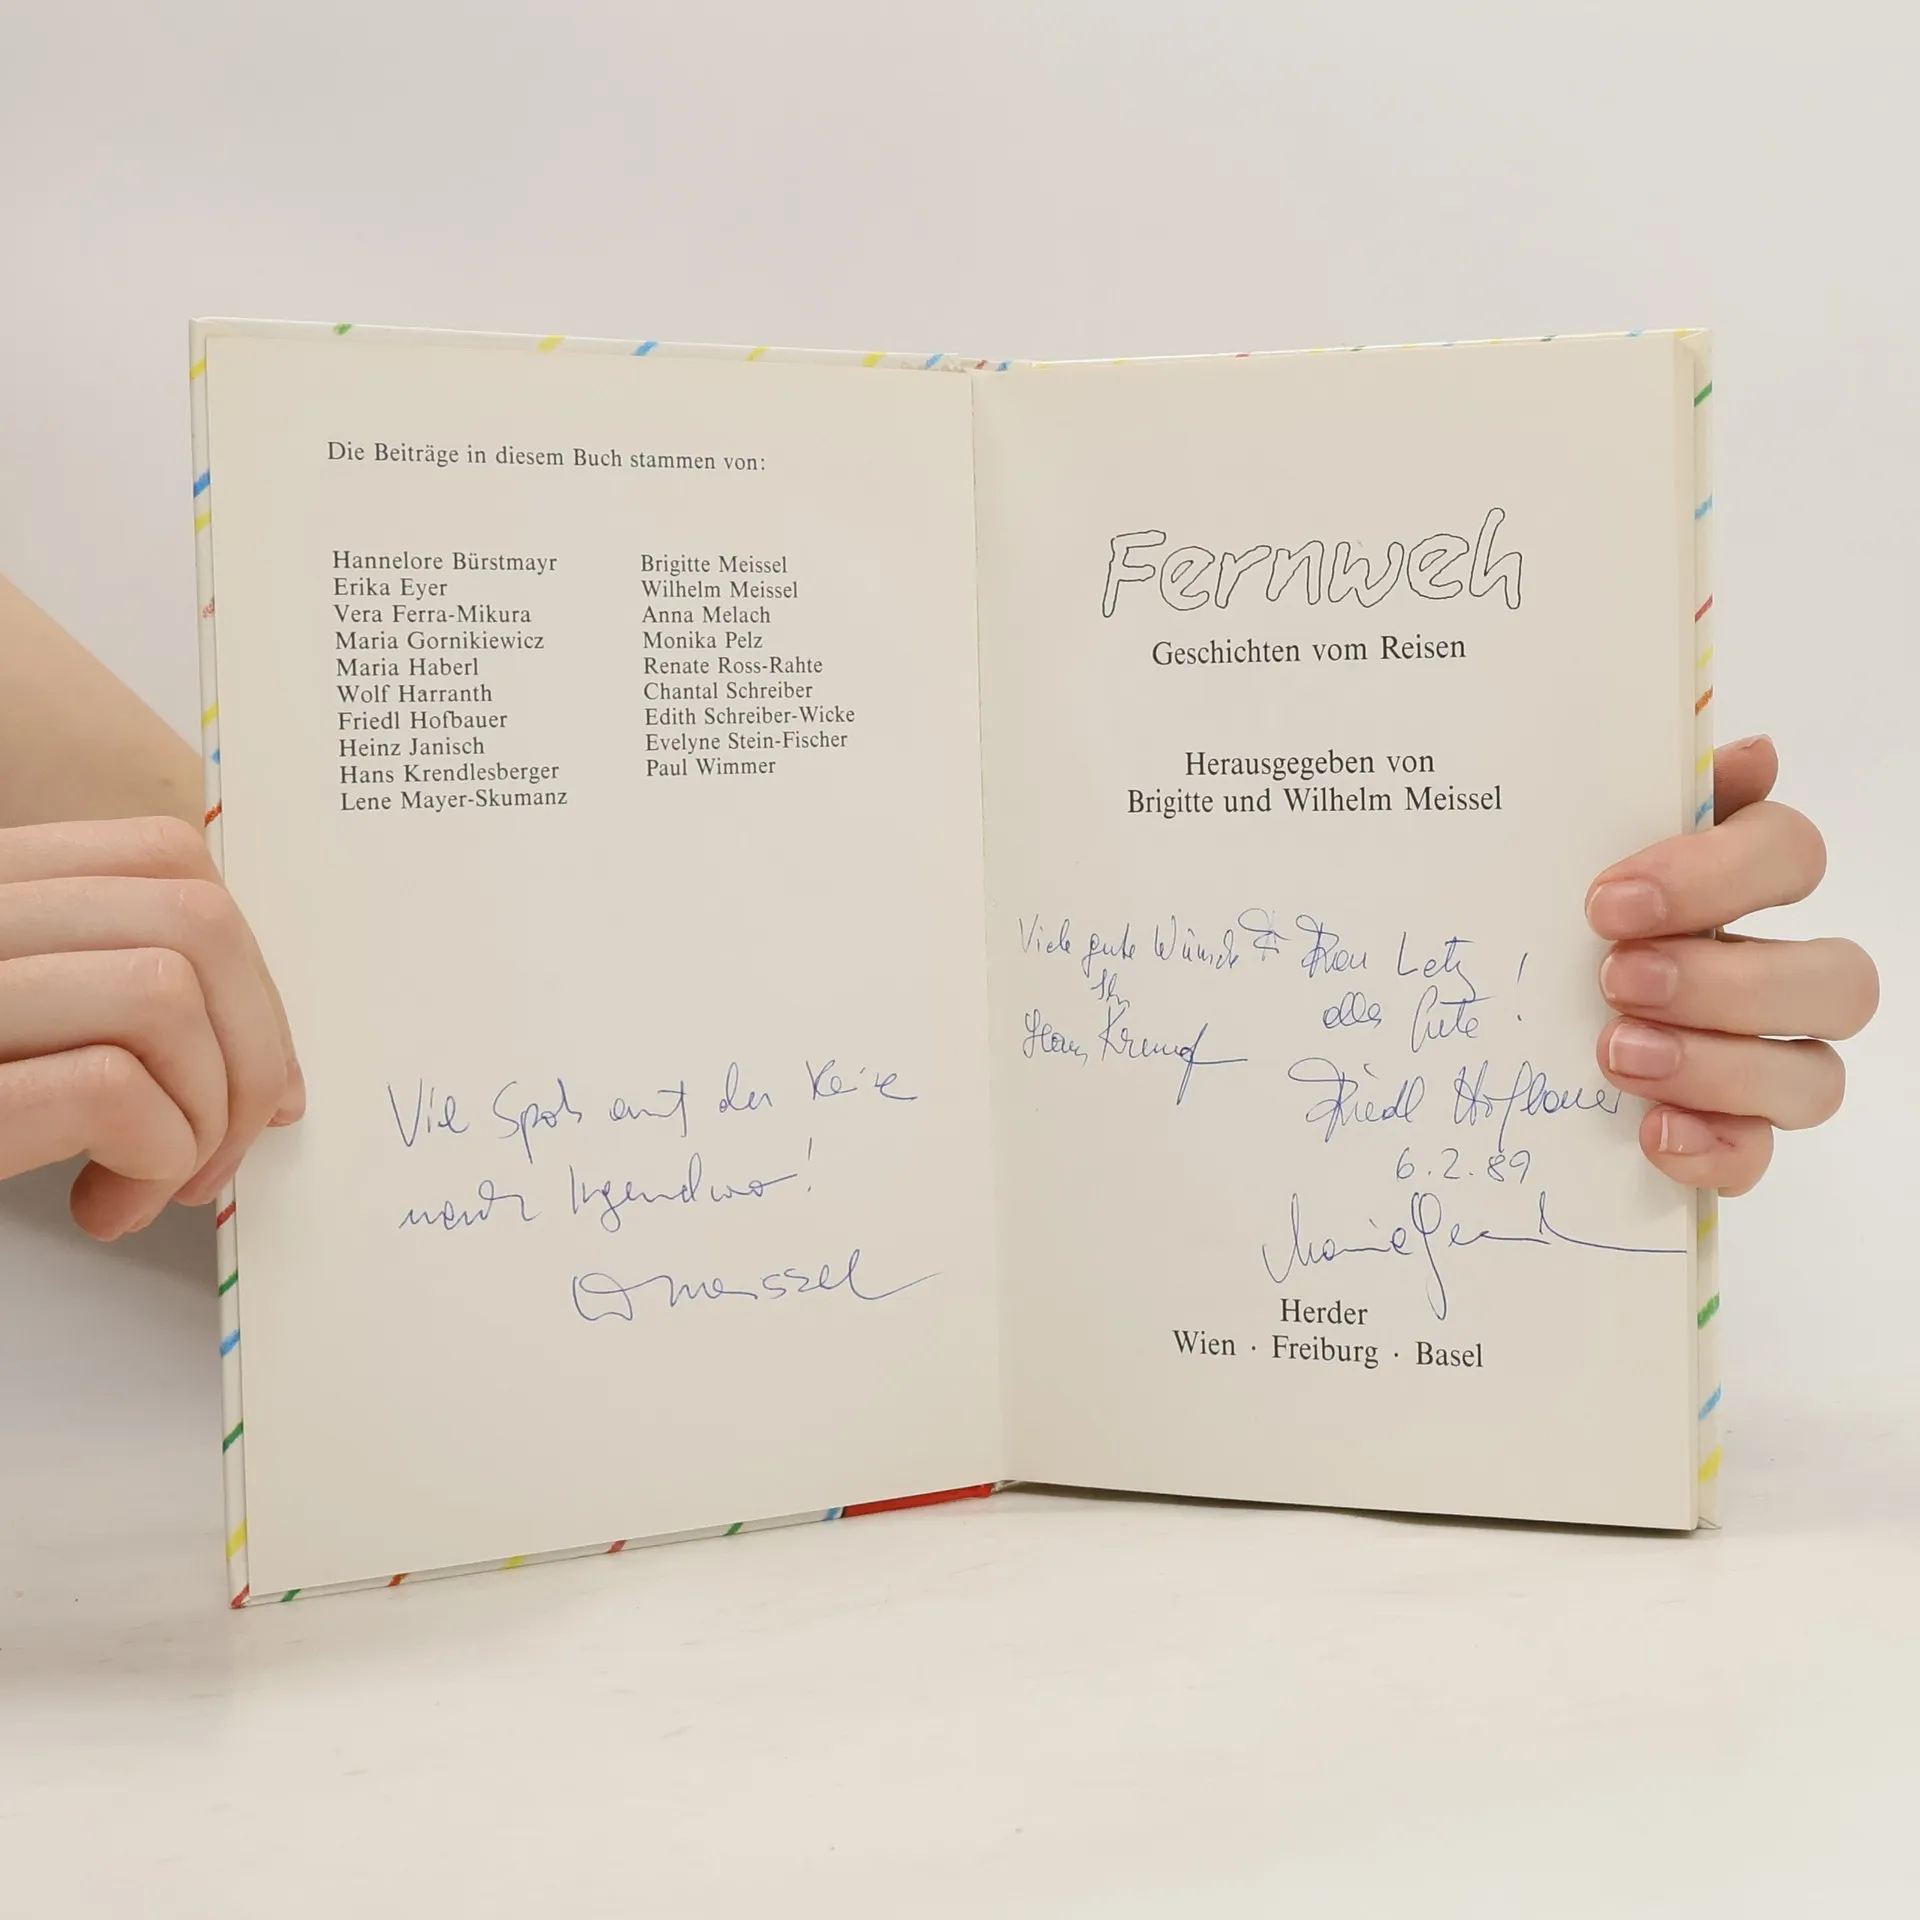 Die Beiträge in diesem Buch stammen von:
Hannelore Bürstmayr
Erika Eyer
Vera Ferra-Mikura
Maria Gornikiewicz
Maria Haberl
Wolf Harranth
Friedl Hofbauer
Heinz Janisch
Hans Krendlesberger
Lene Mayer-Skumanz
Brigitte Meissel
Wilhelm Meissel
Anna Melach
Monika Pelz
Renate Ross-Rahte
Chantal Schreiber
Edith Schreiber-Wicke
Evelyne Stein-Fischer
Paul Wimmer
Viel Spaß auf der Reise
nach Irgendwo!
W Meissel
Fernweh
Geschichten vom Reisen
Herausgegeben von
Brigitte und Wilhelm Meissel
Viele gute Wünsche
Ihr
Hans
Frau Letz
alles Gute!
Friedl Hofbauer
6.2.89
Maria
Herder
Wien · Freiburg · Basel